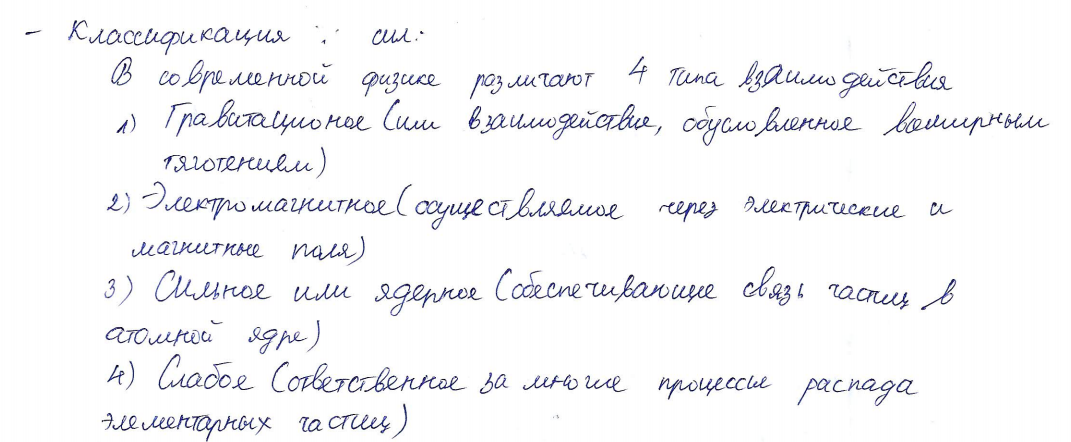 - Классификация сил:
В современной физике различают 4 типа взаимодействия
1) Гравитационое (или взаимодействие, обусловленное всемирным
тяготением)
2) Электромагнитное (осуществляемое через электрические и
магнитные поля)
3) Сильное или ядерное (обеспечивающие связь частиц в
атомной ядре)
4) Слабое (ответственное за многие процессы распада
элементарных частиц)